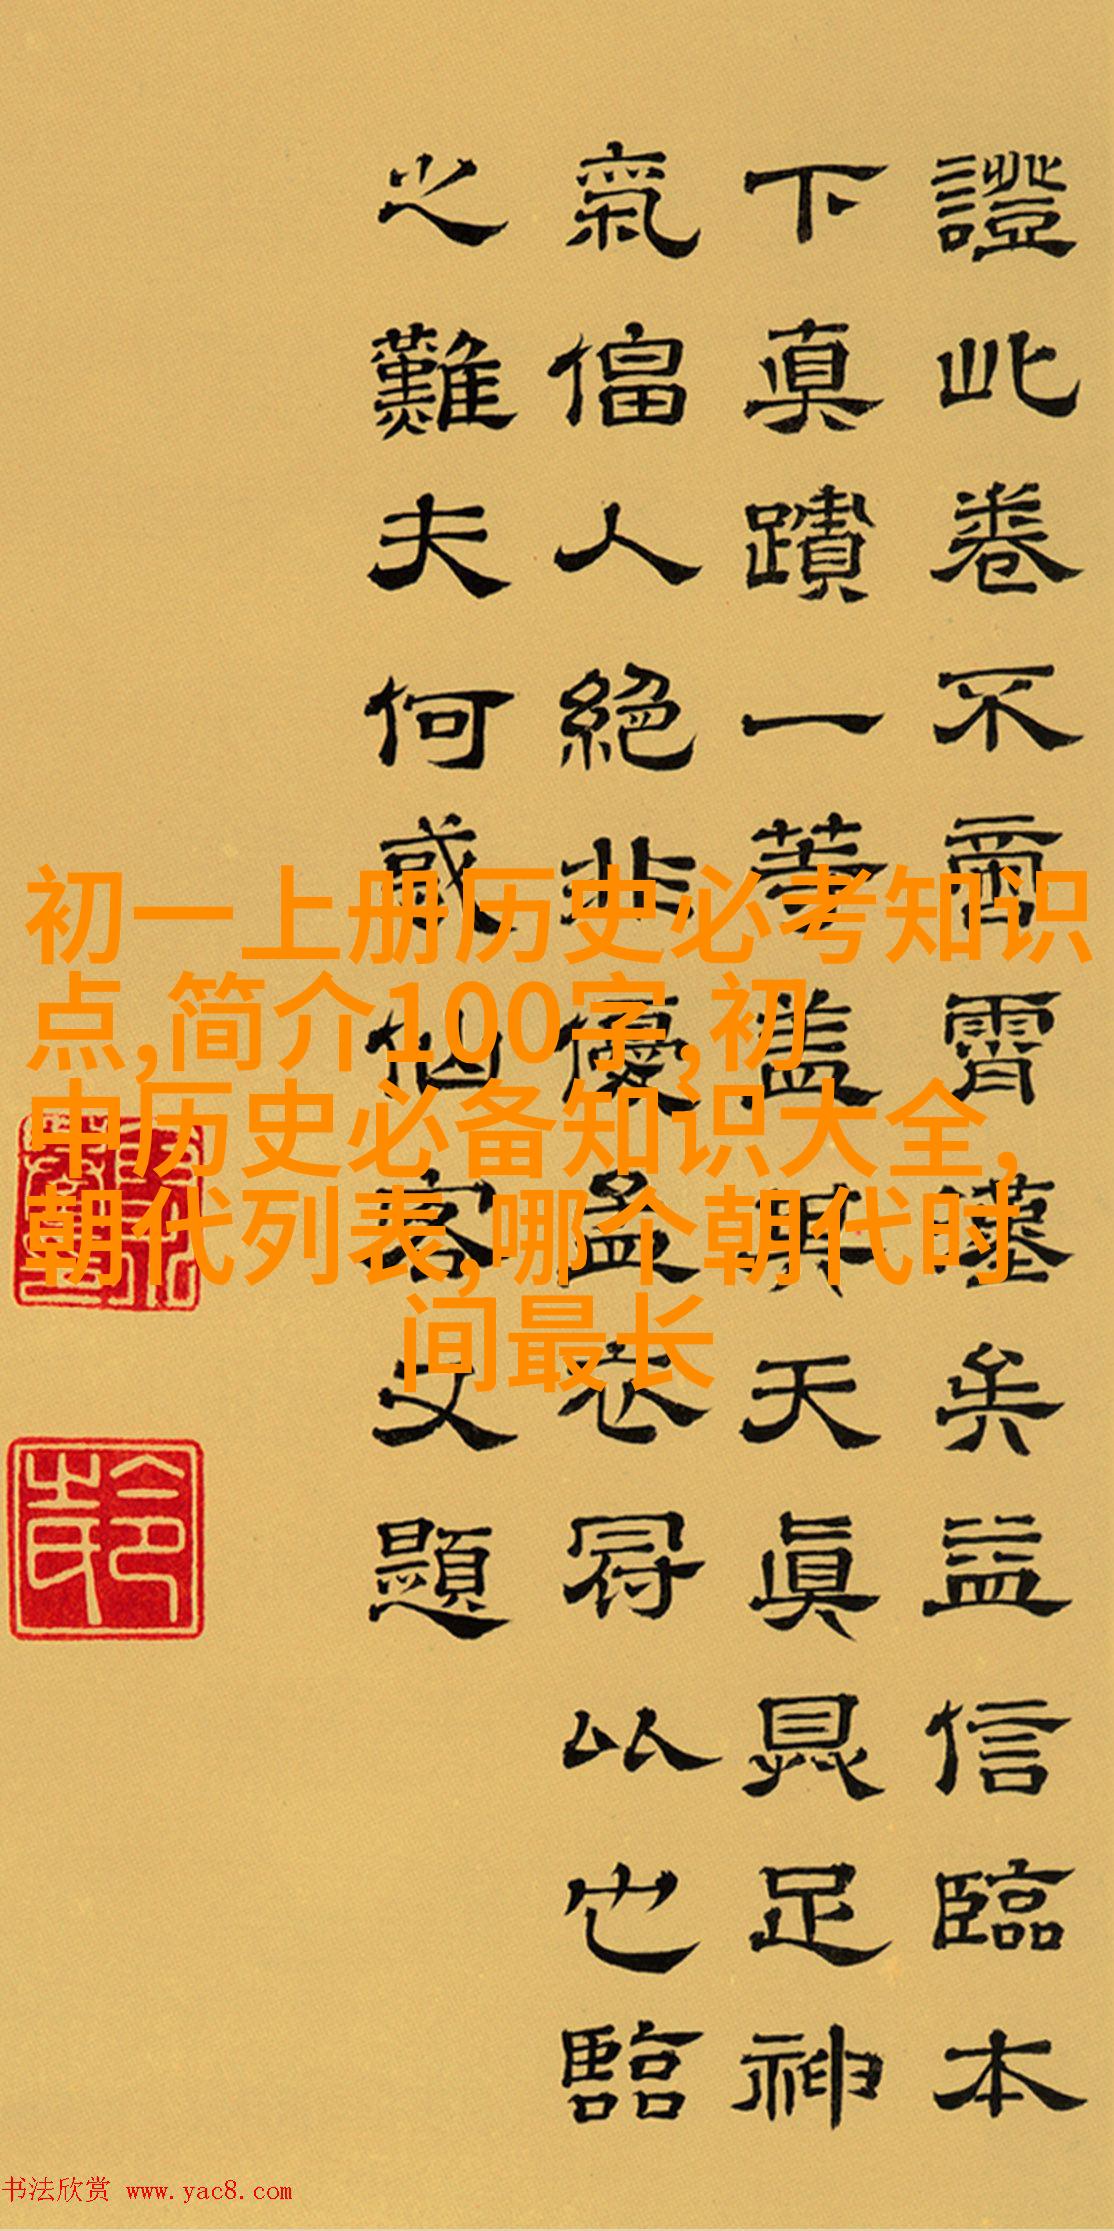 證此卷不啻霄壤矣益信臨本
下真蹟一等盖其天真具足神
氣偪人絕非優孟衣冠尋以也臨
之難夫何或仙客文題
初一上册历史必考知识
点,简介100字,初
中历史必备知识大全,
朝代列表,哪个朝代时
间最长
书法欣赏 www.yac8.com